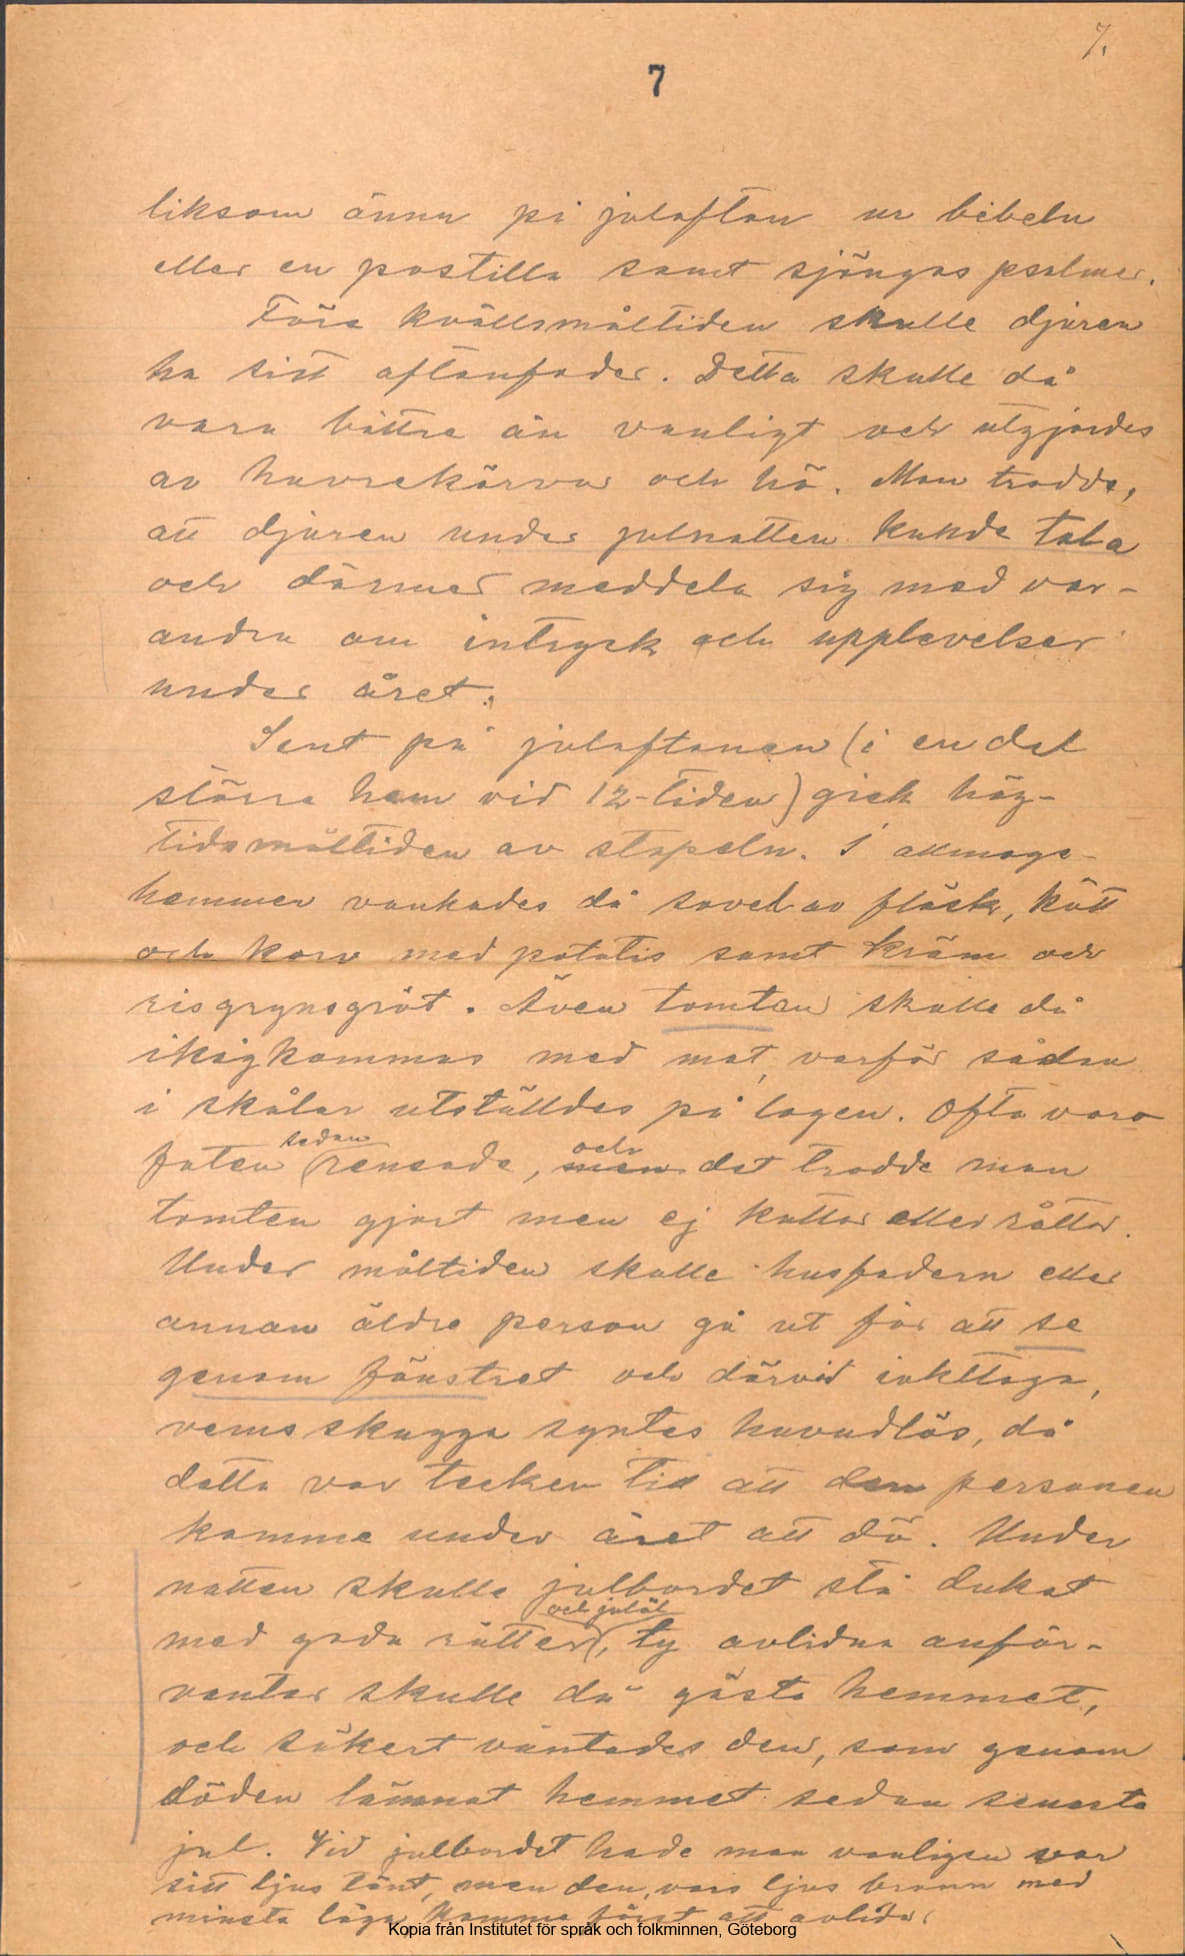 7.
7
liksom ännu på julafton ur bibeln
eller en postilla samt sjöngos psalmer.
Före kvällsmåltiden skulle djuren
ha sitt aftonfoder. Detta skulle då
vara bättre än vanligt och utgjordes
av havrekärvar och hö. Man trodde,
att djuren under julnatten kunde tala
och därmed meddela sig med var-
andra om intryck och upplevelser
under året.
Sent på julaftonen (i en del
större hem vid 12-tiden) gick hög-
tidsmåltiden av stapeln. I allmoge-
hemmen vankades då sovel av fläsk, kött
och korv med potatis samt kräm och
risgrynsgröt. Även tomten skulle då
ihågkommas med mat, varför sådan
i skålar utställdes på logen. Ofta voro
faten sedan rensade, men och det trodde man
tomten gjort men ej kattor eller råttor.
Under måltiden skulle husfadern eller
annan äldre person gå ut för att se
genom fönstret och därvid iakttaga,
vems skugga syntes huvudlös, då
detta var tecken till att den personen
komme under året att dö. Under
natten skulle julbordet stå dukat
med goda rätter och julöl, ty avlidna anför-
vanter skulle då gästa hemmet,
och säkert väntades den, som genom
döden lämnat hemmet sedan senaste
jul. Vid julbordet hade man vanligen var
sitt ljus tänt, men den, vars ljus brann med
minsta låga, komme först att avlida.
Kopia från Institutet för språk och folkminnen, Göteborg